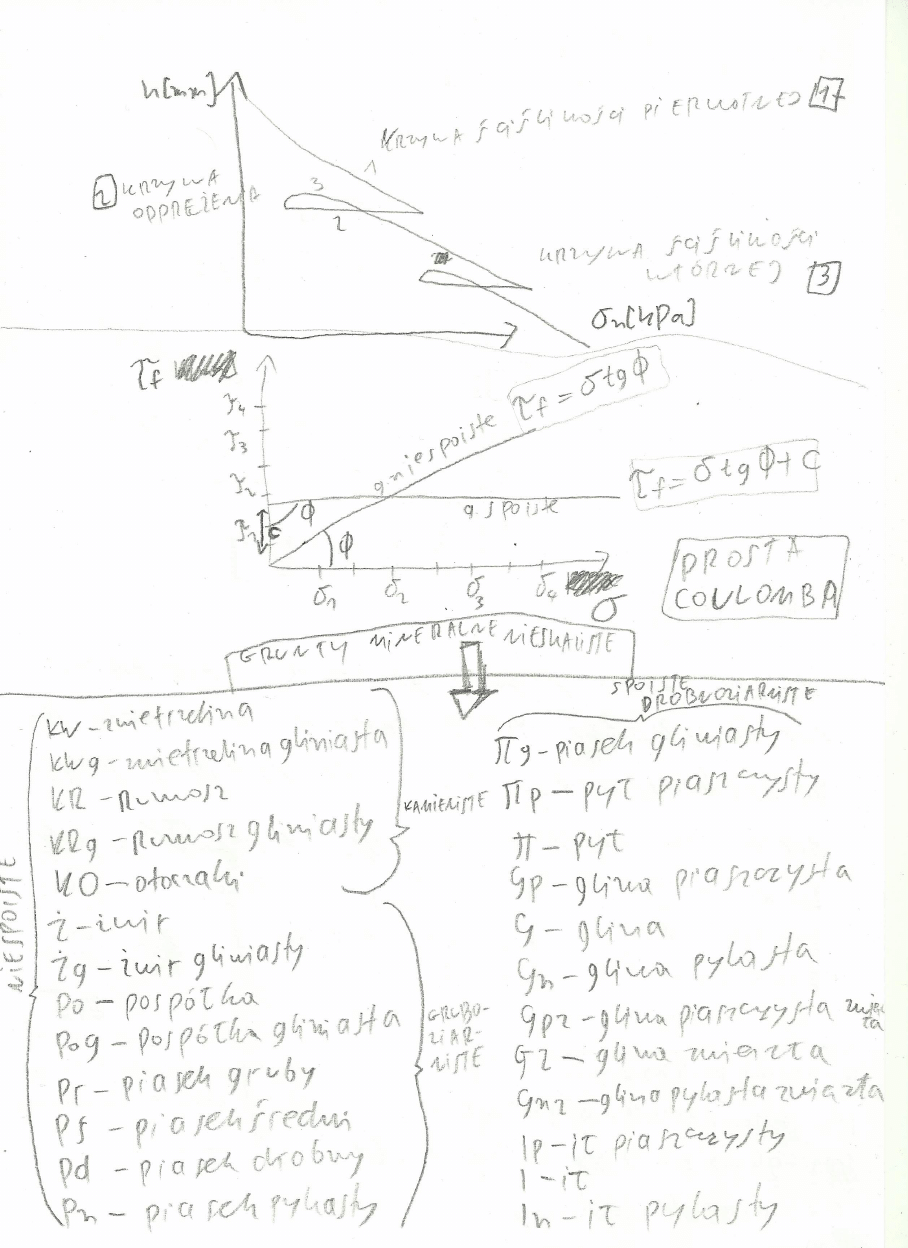 h[mm]
KRZYWA ŚCIŚLIWOŚCI PIERWOTNEJ 1
1
2 KRZYWA
ODPRĘŻENIA
3
2
KRZYWA ŚCIŚLIWOŚCI
WTÓRNEJ 3
σn[kPa]
τf
τ4
τ3
τ2
τ1
g niespoiste
τf = σtgΦ
τf = σtgΦ+C
C
Φ
Φ
g. spoiste
σ1 σ2 σ3 σ4 σ
PROSTA
COULOMBA
GRUNTY MINERALNE NIESKALISTE
NIESPOISTE
KW - zwietrzelina
KWg - zwietrzelina gliniasta
KR - rumosz
KRg - rumosz gliniasty
KO - otoczaki
KAMIENISTE
Ż - żwir
Żg - żwir gliniasty
Po - pospółka
Pog - pospółka gliniasta
Pr - piasek gruby
Ps - piasek średni
Pd - piasek drobny
Pπ - piasek pylasty
GRUBO-
ZIAR-
NISTE
SPOISTE
DROBNOZIARNISTE
Πg - piasek gliniasty
Πp - pył piaszczysty
π - pył
Gp - glina piaszczysta
G - glina
Gπ - glina pylasta
Gpz - glina piaszczysta zwięzła
Gz - glina zwięzła
Gπz - glina pylasta zwięzła
Ip - ił piaszczysty
I - ił
Iπ - ił pylasty